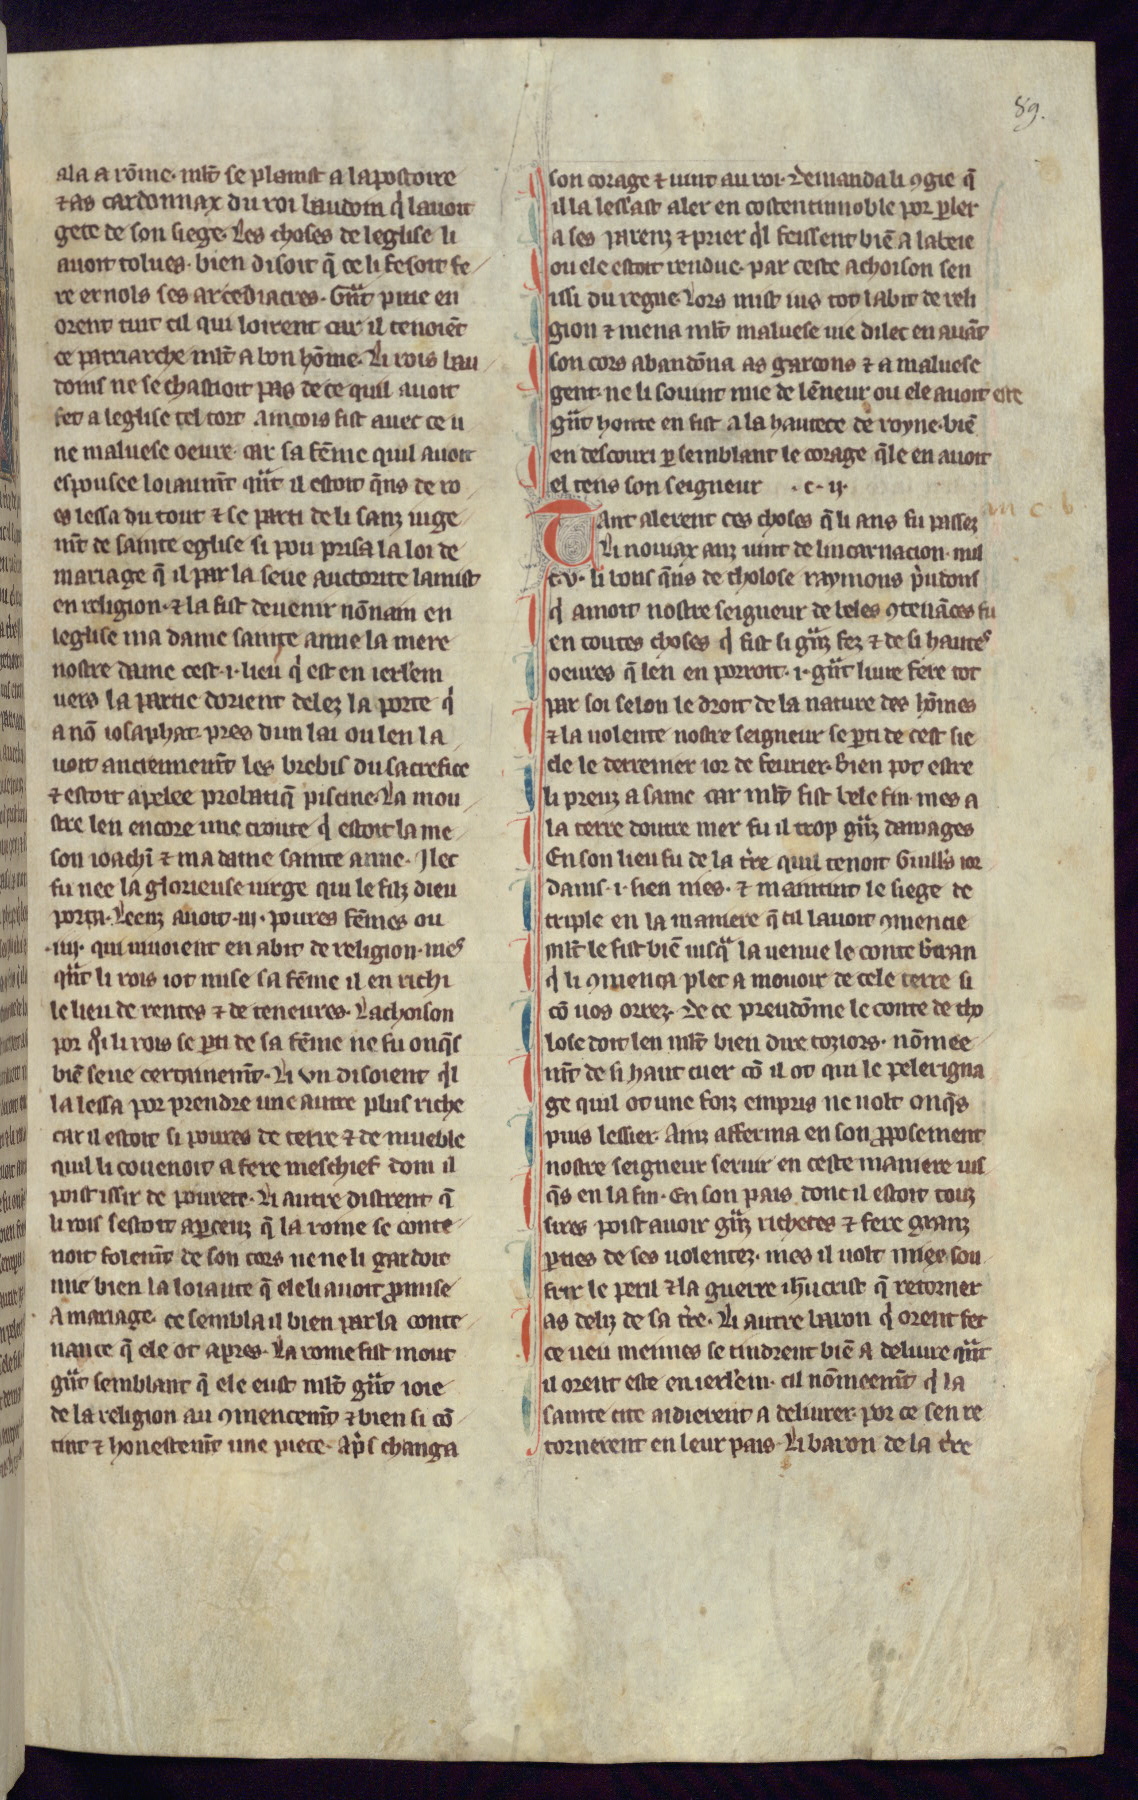 89.
ala a rōme. mlt̄ se plainst a lapostoire
⁊ as cardonnax du roi baudoin q̇ lauoit
gete de son siege. Les choses de leglise li
auoit tolues. bien disoit q̄ ce li fesoit fe
re ernols ses arcediacres. Gn̄t pitie en
orent tuit cil qui loirent car il tenoiēt
ce patriarche mlt̄ a bon hōme. Li rois bau
doins ne se chastioit pas de ce quil auoit
fet a leglise tel tort aincois fist auec ce u
ne maluese oeure. car sa fēme quil auoit
espousee loiaumt̄ qn̄t il estoit q̄ns de ro
es lessa du tout ⁊ se parti de li sanz iuge
mt̄ de sainte eglise si pou prisa la loi de
mariage q̄ il par la seue auctorite lamist
en religion. ⁊ la fist deuenir nōnain en
leglise ma dame sainte anne la mere
nostre dame cest .i. lieu q̇ est en ierl'em
uers la partie dorient delez la porte q̇
a nō iosaphat. pres dun lai ou len la
uoit anciennemt̄ les brebis du sacrefice
⁊ estoit apelee probatiq̄ piscine. La mou
stre len encore une croute q̇ estoit la me
son ioachī ⁊ ma dame sainte anne. Ilec
fu nee la glorieuse uirge qui le filz dieu
porta. Leenz auoit .iii. poures fēmes ou
.iiii. qui uiuoient en abit de religion. mes
qn̄t li rois iot mise sa fēme il en richi
le lieu de rentes ⁊ de teneures. Lachoison
por qͥi li rois se pti de sa fēme ne fu onq̄s
biē seue certainemt̄. Li vn disoient q̇l
la lessa por prendre une autre plus riche
car il estoit si poures de terre ⁊ de mueble
quil li couenoit a fere meschief dom il
poist issir de pourete. Li autre distrent q̄
li rois sestoit apceuz q̄ la rome se conte
noit folemt̄ de son cors ne ne li gardoit
mie bien la loiaute q̄ ele li auoit pmise
A mariage. ce sembla il bien par la conte
nance q̄ ele ot apres. La rome fist mout
gn̄t semblant q̄ ele eust mlt̄ gn̄t ioie
de la religion au 9mencemt̄ ⁊ bien si cō
tint ⁊ honestemt̄ une piece. Ap̄s changa
son corage ⁊ uint au roi. Demanda li 9gie q̄
il la lessast aler en costentinnoble por pler
a ses parenz ⁊ prier q̇l feissent biē a labeie
ou ele estoit rendue. par ceste achoison sen
issi du regne. Lors mist ius tot labit de reli
gion ⁊ mena mlt̄ maluese uie dilec en auāt
son cors abandōna as garcons ⁊ a maluese
gent. ne li souint mie de lēneur ou ele auoit este
gn̄t honte en fist a la hautece de royne. biē
en descouri p semblant le corage q̄le en auoit
el tens son seigneur .c. ij.
Tant alerent ces choses q̄ li ans fu passez
Li nouiax anz uint de lincarnacion. mil
c. v. li bons q̄ns de tholose raymons p̄udons
q̇ amoit nostre seigneur de beles 9tenāces fu
en toutes choses q̇ fist si gn̄z fez ⁊ de si hautes
oeures q̄ len en porroit .i. gn̄t liure fere tot
par soi selon le droit de la nature des hōmes
⁊ la uolente nostre seigneur se pti de cest sie
cle le derreiner ior de feurier. Bien pot estre
li preuz a same car mlt̄ fist bele fin. mes a
la terre doutre mer fu il trop gn̄z damages
En son lieu fu de la t̄re quil tenoit Guill's ior
dains .i. sien nies. ⁊ maintint le siege de
triple en la maniere q̄ cil lauoit 9mencie
mlt̄ le fist biē iusq̄ la uenue le conte b̄tran
q̇ li 9menca plet a mouoir de cele terre si
cō uos orrez. De ce preudōme le conte de tho
lose doit len mlt̄ bien dire toziors. nōmee
mt̄ de si haut cuer cō il ot qui le pelerigna
ge quil ot une foiz empris ne uolt onq̄s
puis lessier. Ainz afferma en son pposement
nostre seigneur seruir en ceste maniere ius
q̄s en la fin. En son pais donc il estoit touz
sires poist auoir gn̄z richeces ⁊ fere granz
pties de ses uolentez. mes il uolt miez sou
frir le peril ⁊ la guerre ih̄ucrist q̄ retorner
as deliz de sa t̄re. Li autre baron q̇ orent fet
ce ueu meimes se tindrent biē a deliure qn̄t
il orent este en ierl'em. cil nōmeemt̄ q̇ la
sainte cite aidierent a deliurer. por ce sen re
tornerent en leur pais. Li baron de la t̄re